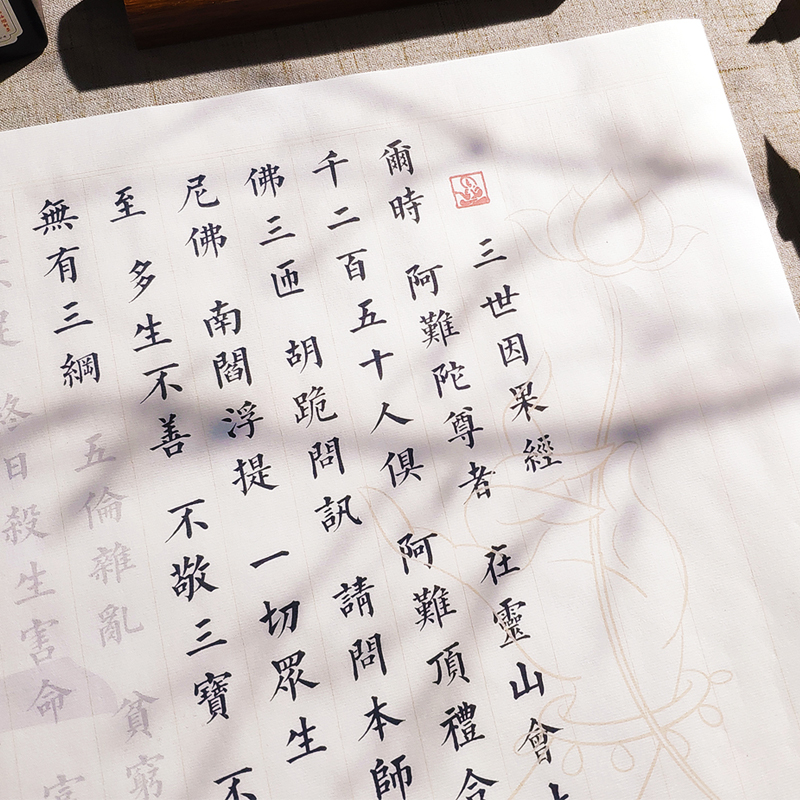 三世因果經
爾時 阿難陀尊者 在靈山會
千二百五十人俱 阿難頂禮合
佛三匝 胡跪問訊 請問本師
尼佛 南閻浮提 一切眾生
至 多生不善 不敬三寶 不
無有三綱 五倫雜亂 貧窮
終日殺生害命